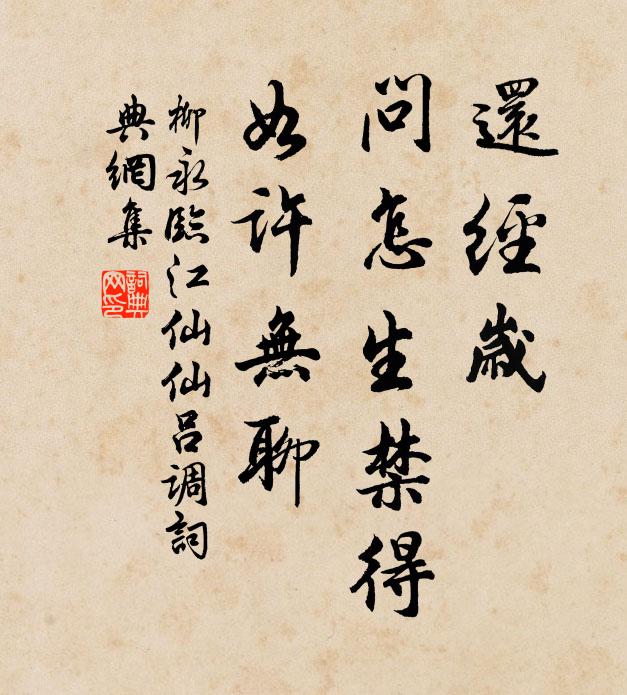 還經歲
問怎生禁得
如許無聊
柳永臨江仙仙呂調詞
典網集
詞典网印